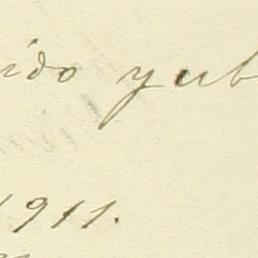 ido yub
1911.